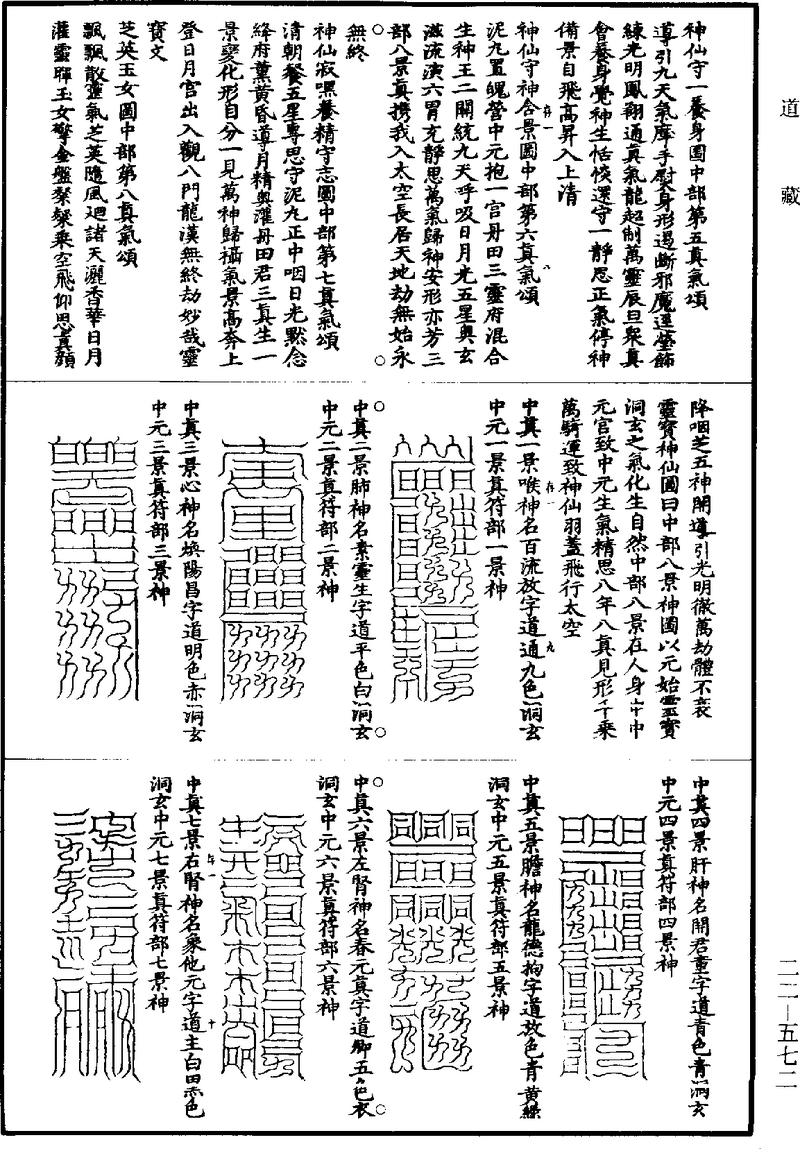 道藏
神仙守一養身圖中部第五真氣頌
導引九天氣摩手熨身形遏斷邪魔逕瑩飾
練光明鳳翔通真氣龍超制萬靈辰旦聚真
會養身覺神生恬惔還守一靜思正氣停神
備景自飛高昇入上清
神仙守神含景圖中部第六真氣頌
泥丸置魄營中元抱一宮丹田三靈府混合
生神王二關統九天呼吸日月光五星與玄
滋流演六胃充靜思萬氣歸神安形亦芳三
部八景真攜我入太空長居天地劫無始永
無終
神仙寂嘿養精守志圖中部第七真氣頌
清朝餐五星專思守泥丸正中咽日光默念
絳府薰黃昏導月精輿灌丹田君三真生一
景變化形自分一見萬神歸攝氣景高奔上
登日月宮出入觀八門龍漢無終劫妙哉靈
寶文
芝英玉女圖中部第八真氣頌
飄飄散靈氣芝英隨風迴諸天灑香華日月
灌靈暉玉女擎金盤粲粲乘空飛仰思真顏
降咽芝五神開導引光明徹萬劫體不衰
靈寶神仙圖曰中部八景神圖以元始靈寶
洞玄之氣化生自然中部八景在人身中中
元宮致中元生氣精思八年八真見形千乘
萬騎運致神仙羽蓋飛行太空
中真一景喉神名百流放字道通九色洞玄
中元一景真符部一景神
中真二景肺神名素靈生字道平色白洞玄
中元二景真符部二景神
中真三景心神名煥陽昌字道明色赤洞玄
中元三景真符部三景神
中真四景肝神名開君童字道青色青洞玄
中元四景真符部四景神
中真五景膽神名龍德拘字道放色青黃綠
洞玄中元五景真符部五景神
中真六景左腎神名春元真字道卿五色衣
洞玄中元六景真符部六景神
中真七景右腎神名象他元字道主白黑色
洞玄中元七景真符部七景神
二二—五七二